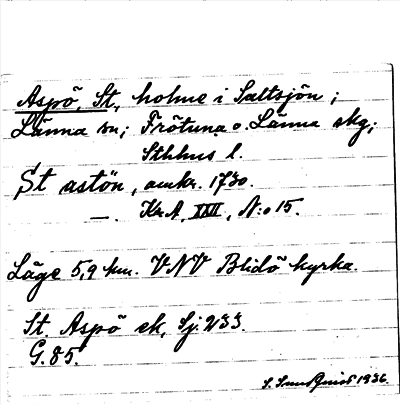 Aspö, St., holme i Saltsjön;
Länna sn; Frötuna o. Länna skg;
Sthlms l.
St astön, omkr. 1730.
—. Kr.A. XXII, N:o 15.
Läge 5,9 km. VNV Blidö kyrka.
St. Aspö ek, Sj. 233.
G. 85.
1936.